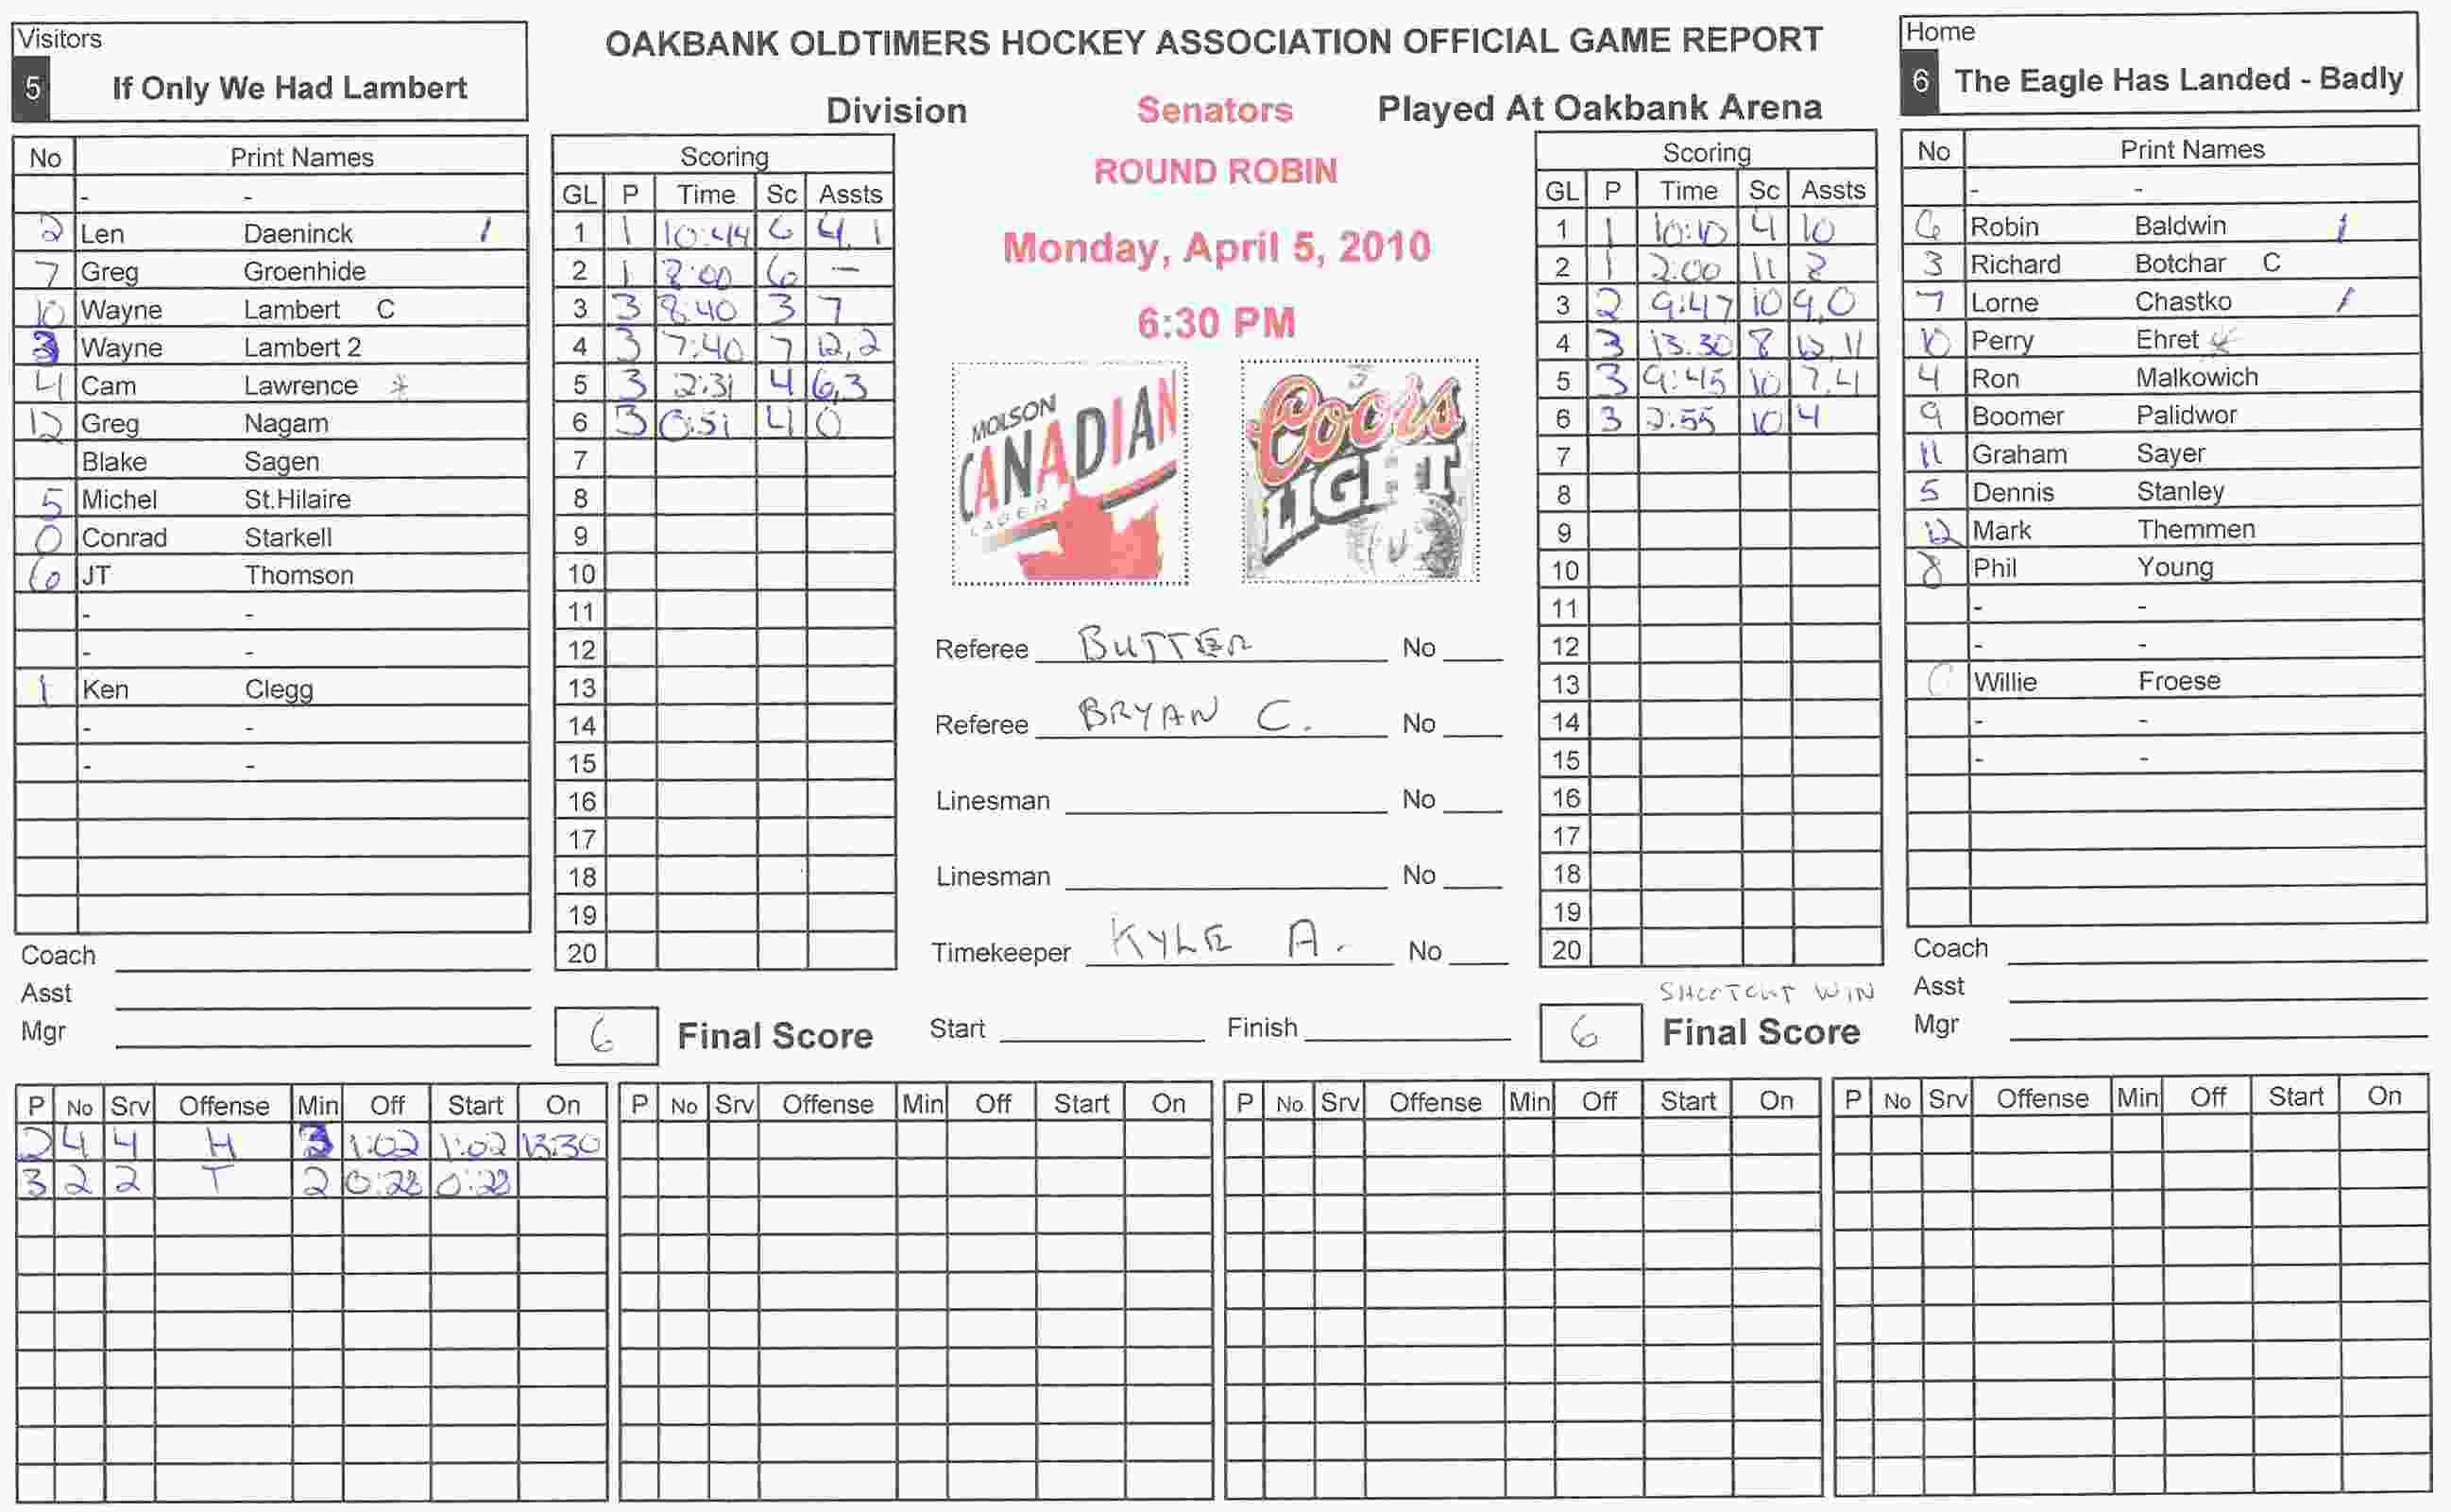 Visitors
5 If Only We Had Lambert
OAKBANK OLDTIMERS HOCKEY ASSOCIATION OFFICIAL GAME REPORT
Division Senators Played At Oakbank Arena
ROUND ROBIN
Monday, April 5, 2010
6:30 PM
Home
6 The Eagle Has Landed - Badly
No Print Names
- -
2 Len Daeninck 1
7 Greg Groenhide
10 Wayne Lambert C
3 Wayne Lambert 2
4 Cam Lawrence *
12 Greg Nagam
Blake Sagen
5 Michel St.Hilaire
0 Conrad Starkell
6 JT Thomson
- -
- -
1 Ken Clegg
- -
- -
Coach
Asst
Mgr
Scoring
GL P Time Sc Assts
1 1 10:44 6 4, 1
2 1 8:00 6 —
3 3 8:40 3 7
4 3 7:40 7 12,2
5 3 2:31 4 6,3
6 3 0:51 4 0
7
8
9
10
11
12
13
14
15
16
17
18
19
20
6 Final Score
MOLSON
CANADIAN
LAGER
Coors
LIGHT
Referee BUTTER No
Referee BRYAN C. No
Linesman No
Linesman No
Timekeeper KYLE A. No
Start Finish
Scoring
GL P Time Sc Assts
1 1 10:10 4 10
2 1 2:00 11 8
3 2 9:47 10 9,0
4 3 13:30 8 12,11
5 3 9:45 10 7,4
6 3 2:55 10 4
7
8
9
10
11
12
13
14
15
16
17
18
19
20
SHOOTOUT WIN
6 Final Score
No Print Names
- -
6 Robin Baldwin 1
3 Richard Botchar C
7 Lorne Chastko 1
10 Perry Ehret *
4 Ron Malkowich
9 Boomer Palidwor
11 Graham Sayer
5 Dennis Stanley
12 Mark Themmen
8 Phil Young
- -
- -
Willie Froese
- -
- -
Coach
Asst
Mgr
P No Srv Offense Min Off Start On
2 4 4 H 3 1:02 1:02 13:30
3 2 2 T 2 0:28 0:28
P No Srv Offense Min Off Start On
P No. Srv Offense Min Off Start On
P No Srv Offense Min Off Start On